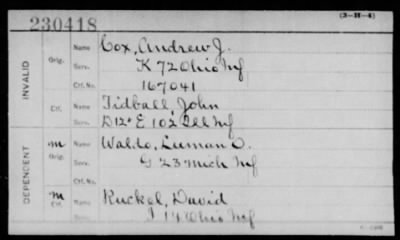 230418
(3-H-4)
INVALID
Orig. Name Cox, Andrew J.
Serv. K 72 Ohio Inf
Ctf. No. 167041
Ctf. Name Tidball, John
Serv. D 12 & E 102 Ill Inf
DEPENDENT
M Orig. Name Waldo, Luman O.
Serv. G 23 Mich Inf
Ctf. No.
M Ctf. Name Ruckel, David
Serv. I 14 Ohio Inf